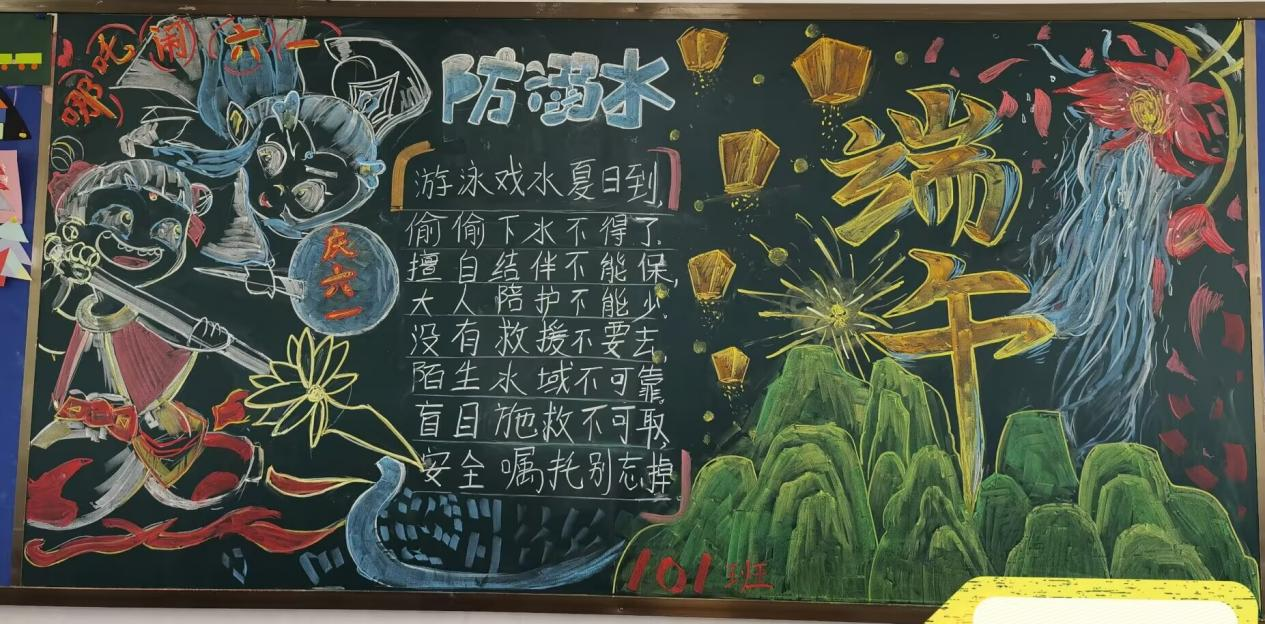 哪吒闹六一
庆六一
防溺水
游泳戏水夏日到,
偷偷下水不得了.
擅自结伴不能保,
大人陪护不能少.
没有救援不要去,
陌生水域不可靠.
盲目施救不可取,
安全嘱托别忘掉.
端午
101班